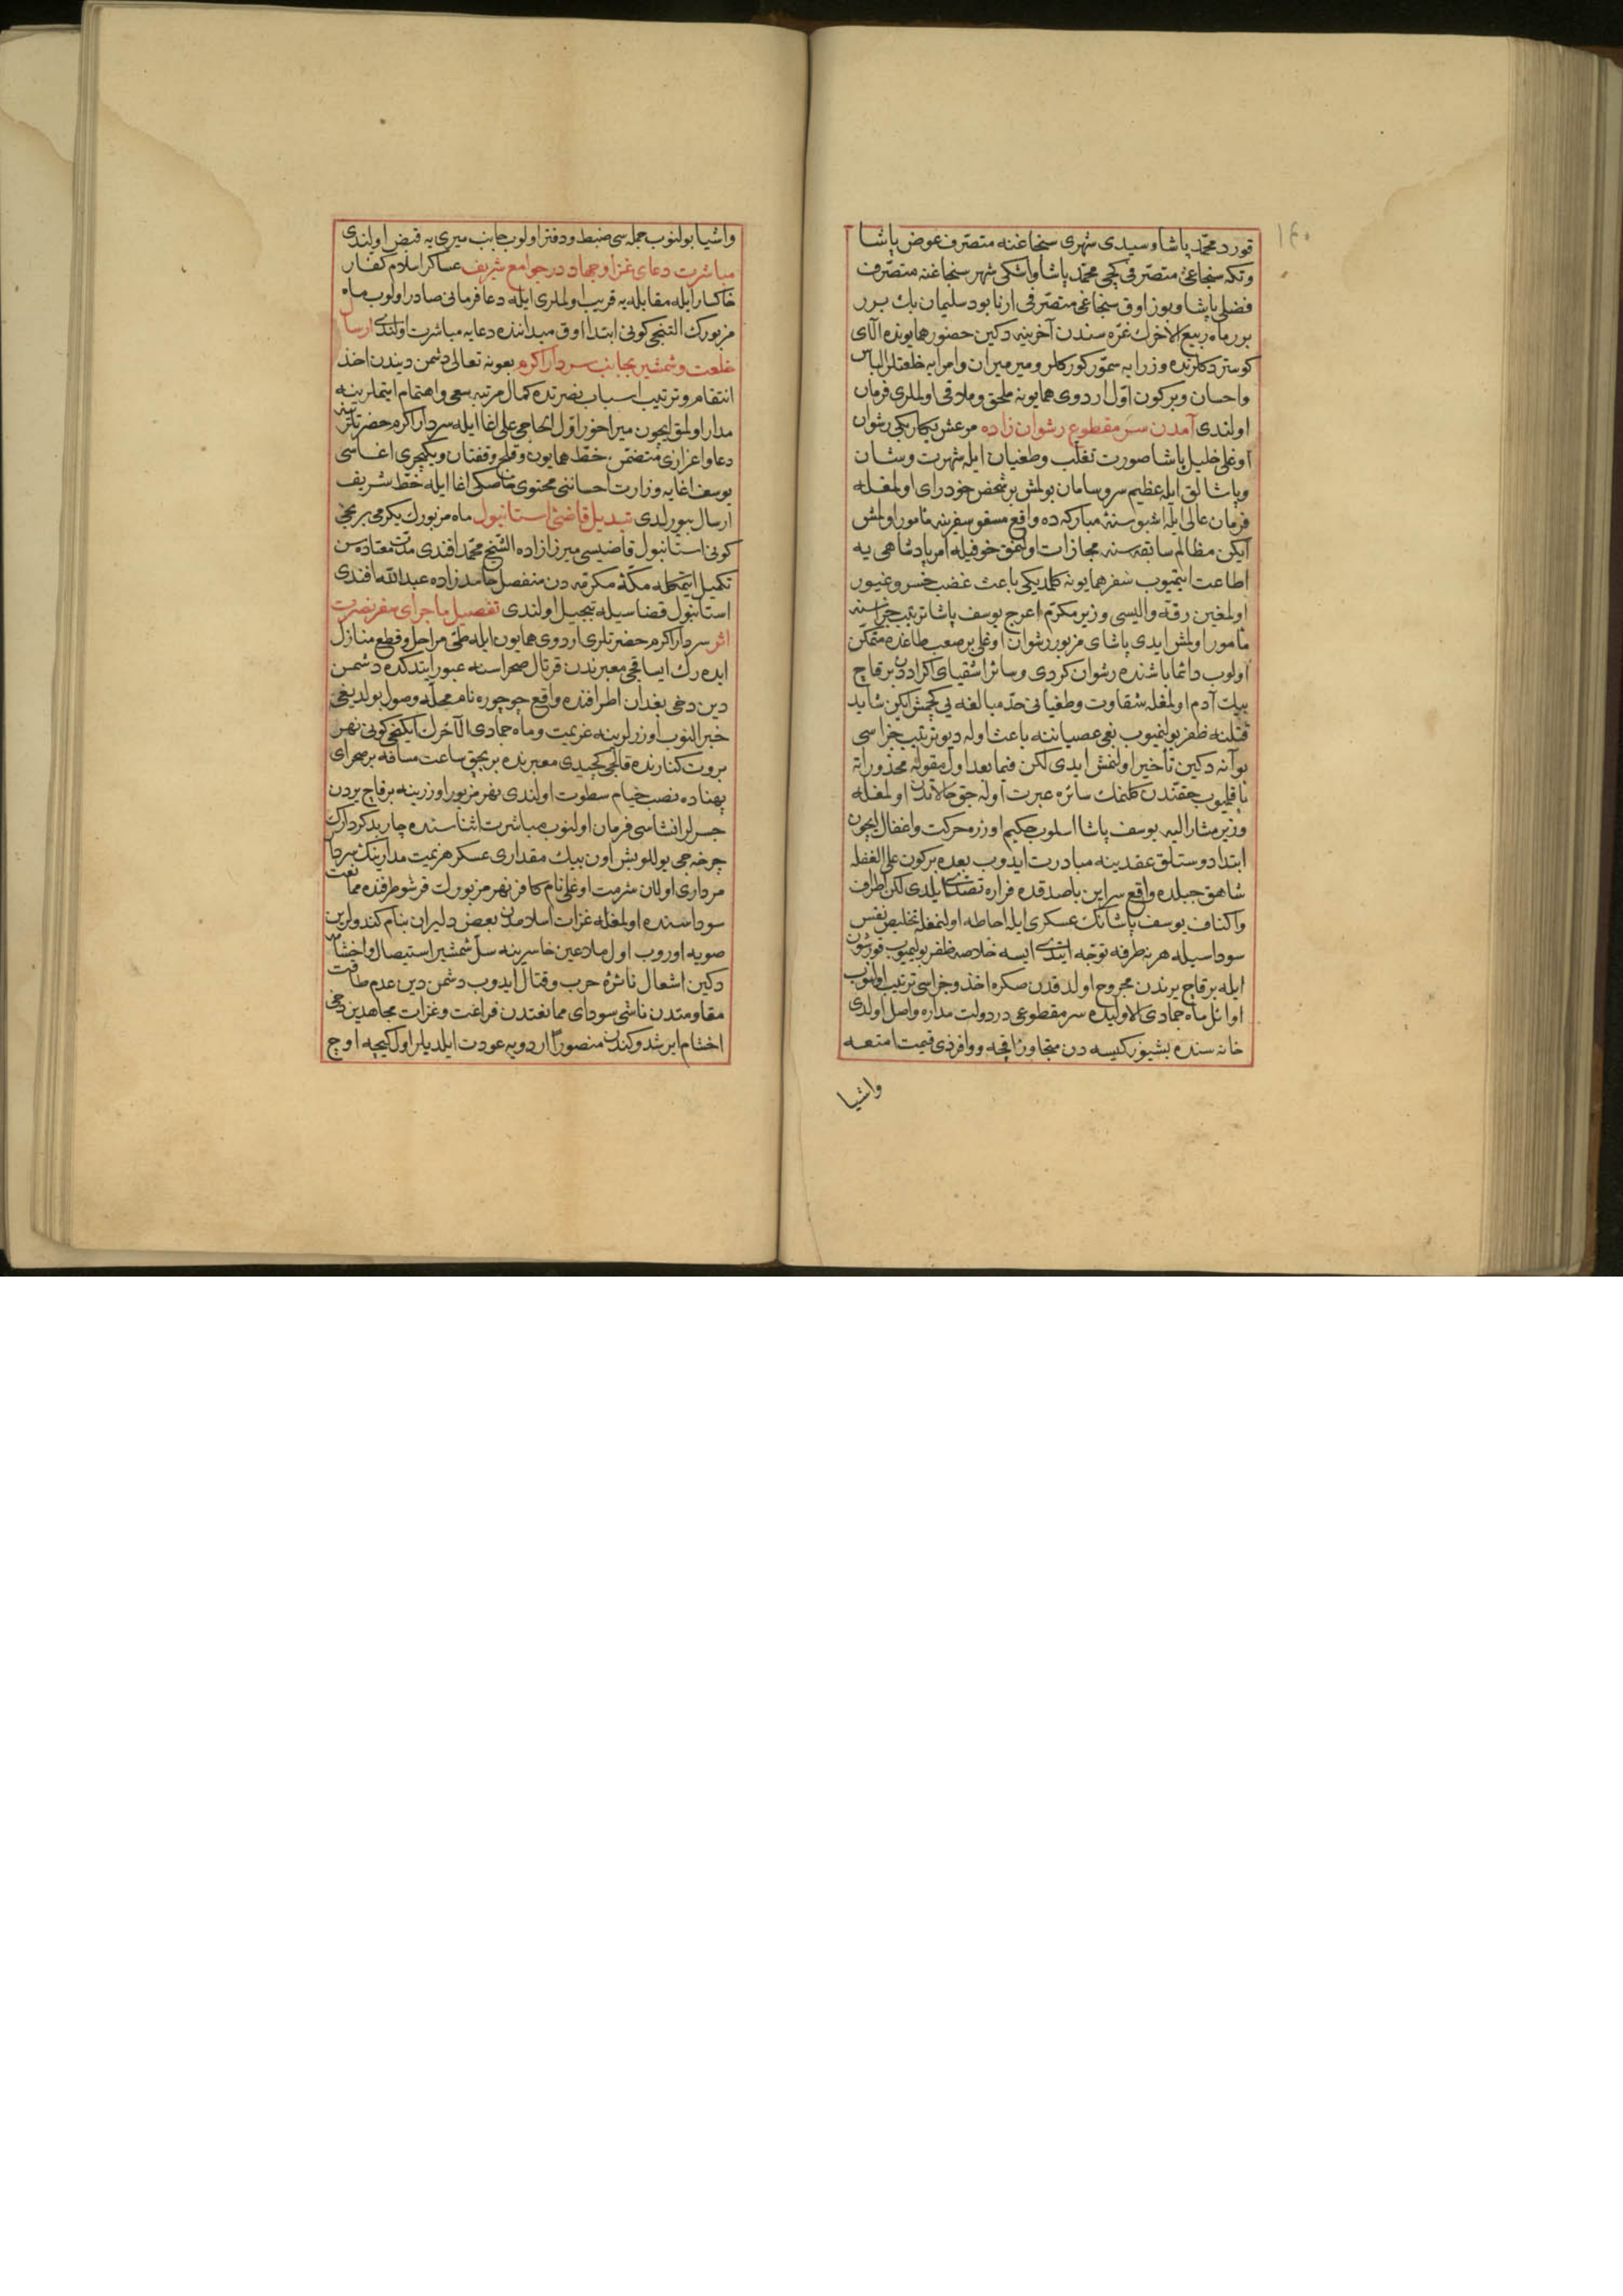 ١٤٠
قورد محمد پاشا و سیدی شهری سنجاغنه متصرف عوض پاشا
وتكه سنجاغی متصرفی كچی محمد پاشا واسكی شهر سنجاغنه متصرف
فضلی پاشا وبوزاوق سنجاغی متصرفی ارنابود سلیمان بك برر
برر ماه ربیع الاخرك غره سندن آخرینه دكین حضور همایونده آلای
كوستردكلرنده وزرایه سمور كوركلر ومیر میران وامرایه خلعتلر الباس
واحسان وبركون اول اردوی همایونه ملحق وملاقی اولملری فرمان
اولندی آمدن سر مقطوع رشوان زاده مرعش بكلربكی رشوان
اوغلی خلیل پاشا صورت تغلب وطغیان ایله شهرت وشان
وپاشالق ایله عظیم سروسامان بولمش بر شخص خودرای اولمغله
فرمان عالی ایله اشبو سنۀ مباركه ده واقع مسقو سفرینه مأمور اولمش
ایكن مظالم سابقه سنه مجازات اولنمق خوفیله امر پادشاهی یه
اطاعت ایتمیوب سفر همایونه كلمدیكی باعث غضب خسرو غیور
اولمغین رقه والیسی وزیر مكرم اعرج یوسف پاشا ترتیب جزاسنه
مأمور اولمش ایدی پاشای مزبور رشوان اوغلی بر صعب طاغده متمكن
اولوب دائما باشنده رشوان كردی وسائر اشقیای اكراددن بر قاچ
بیك آدم اولمغله شقاوت وطغیانی حد مبالغه یی كچمش ایكن شاید
قتلنه ظفر بولنمیوب بغی عصیاننه باعث اوله دیو ترتیب جزاسی
بو آنه دكین تأخیر اولنمش ایدی لكن فیما بعد اول مقوله محذوراته
باقلمیوب حقندن كلنمك سائره عبرت اوله جق حالاتدن اولمغله
وزیر مشار الیه یوسف پاشا اسلوب حكیم اوزره حركت واغفال ایچون
ابتدا دوستلق عقدینه مبادرت ایدوب بعده بركون علی الغفله
شاهق جبلده واقع سراین باصدقده فراره تصدی ایلدی لكن اطراف
واكناف یوسف پاشانك عسكری ایله احاطه اولنمغله تخلیص نفس
سوداسیله هر نه طرفه توجه ایتدی ایسه خلاصه ظفر بولیمیوب قورشون
ایله بر قاچ یرندن مجروح اولدقدن صكره اخذ وجزاسی ترتیب اولنوب
اوائل ماه جمادی الاولیده سر مقطوعی در دولت مداره واصل اولدی
خانه سنده بشیوز كیسه دن متجاوز اقچه ووافر ذی قیمت امتعه
واشیا
واشیا بولنوب جمله سی ضبط ودفتر اولوب جانب میری یه قبض اولندی
مباشرت دعای غزا وجهاد در جوامع شریف عساكر اسلام كفار
خاكسار ایله مقابله یه قریب اولملری ایله دعا فرمانی صادر اولوب ماه
مزبورك التنجی كونی ابتدا اوق میداننده دعایه مباشرت اولندی ارسال
خلعت وشمشیر بجانب سردار اكرم بعونه تعالی دشمن دیندن اخذ
انتقام وترتیب اسباب نصرتده كمال مرتبه سعی واهتمام ایتملرینه
مدار اولمق ایچون میراخور اول الحاجی علی اغا ایله سردار اكرم حضرتلرینه
دعا واعزازی متضمن خط همایون وقلیج وقفتان ویكیچری اغاسی
یوسف اغایه وزارت احساننی محتوی خاصكی اغا ایله خط شریف
ارسال بیورلدی تبدیل قاضئ استانبول ماه مزبورك یكرمی برنجی
كونی استانبول قاضیسی میرزازاده الشیخ محمد افندی مدت معتاده سن
تكمیل ایتمكله مكۀ مكرمه دن منفصل حامدزاده عبدالله افندی
استانبول قضاسیله تبجیل اولندی تفصیل ماجرای سفر نصرت
اثر سردار اكرم حضرتلری اردوی همایون ایله طی مراحل وقطع منازل
ایده رك ایساقجی معبرندن قرتال صحراسنه عبور ایتدكده دشمن
دین دخی بغدان اطرافنده واقع چوچوره نام محله وصول بولدیغی
خبر النوب اوزرلرینه عزیمت وماه جمادی الآخرك ایكنجی كونی نهر
بروت كنارنده قالجی كچیدی معبرنده بر بچق ساعت مسافه بر صحرای
پهناده نصب خیام سطوت اولندی نهر مزبور اوزرینه بر قاچ یردن
جسرلر انشاسی فرمان اولنوب مباشرت اثناسنده چار بدكردارك
چرخه جی یوللو بش اون بیك مقداری عسكر هزیمت مدارینك سردار
مرداری اولان شرمت اوغلی نام كافر نهر مزبورك قرشو طرفنده ممانعت
سوداسنده اولمغله غزات اسلامدن بعض دلیران بنام كندولرین
صویه اوروب اول ملاعین خاسرینه سل شمشیر استیصال واخشام
دكین اشعال نائرۀ حرب وقتال ایدوب دشمن دین عدم طاقت
مقاومتدن ناشی سودای ممانعتدن فراغت وغزات مجاهدین دخی
اخشام ایرشدوكندن منصورا اردویه عودت ایلدیلر اول كیجه اوچ